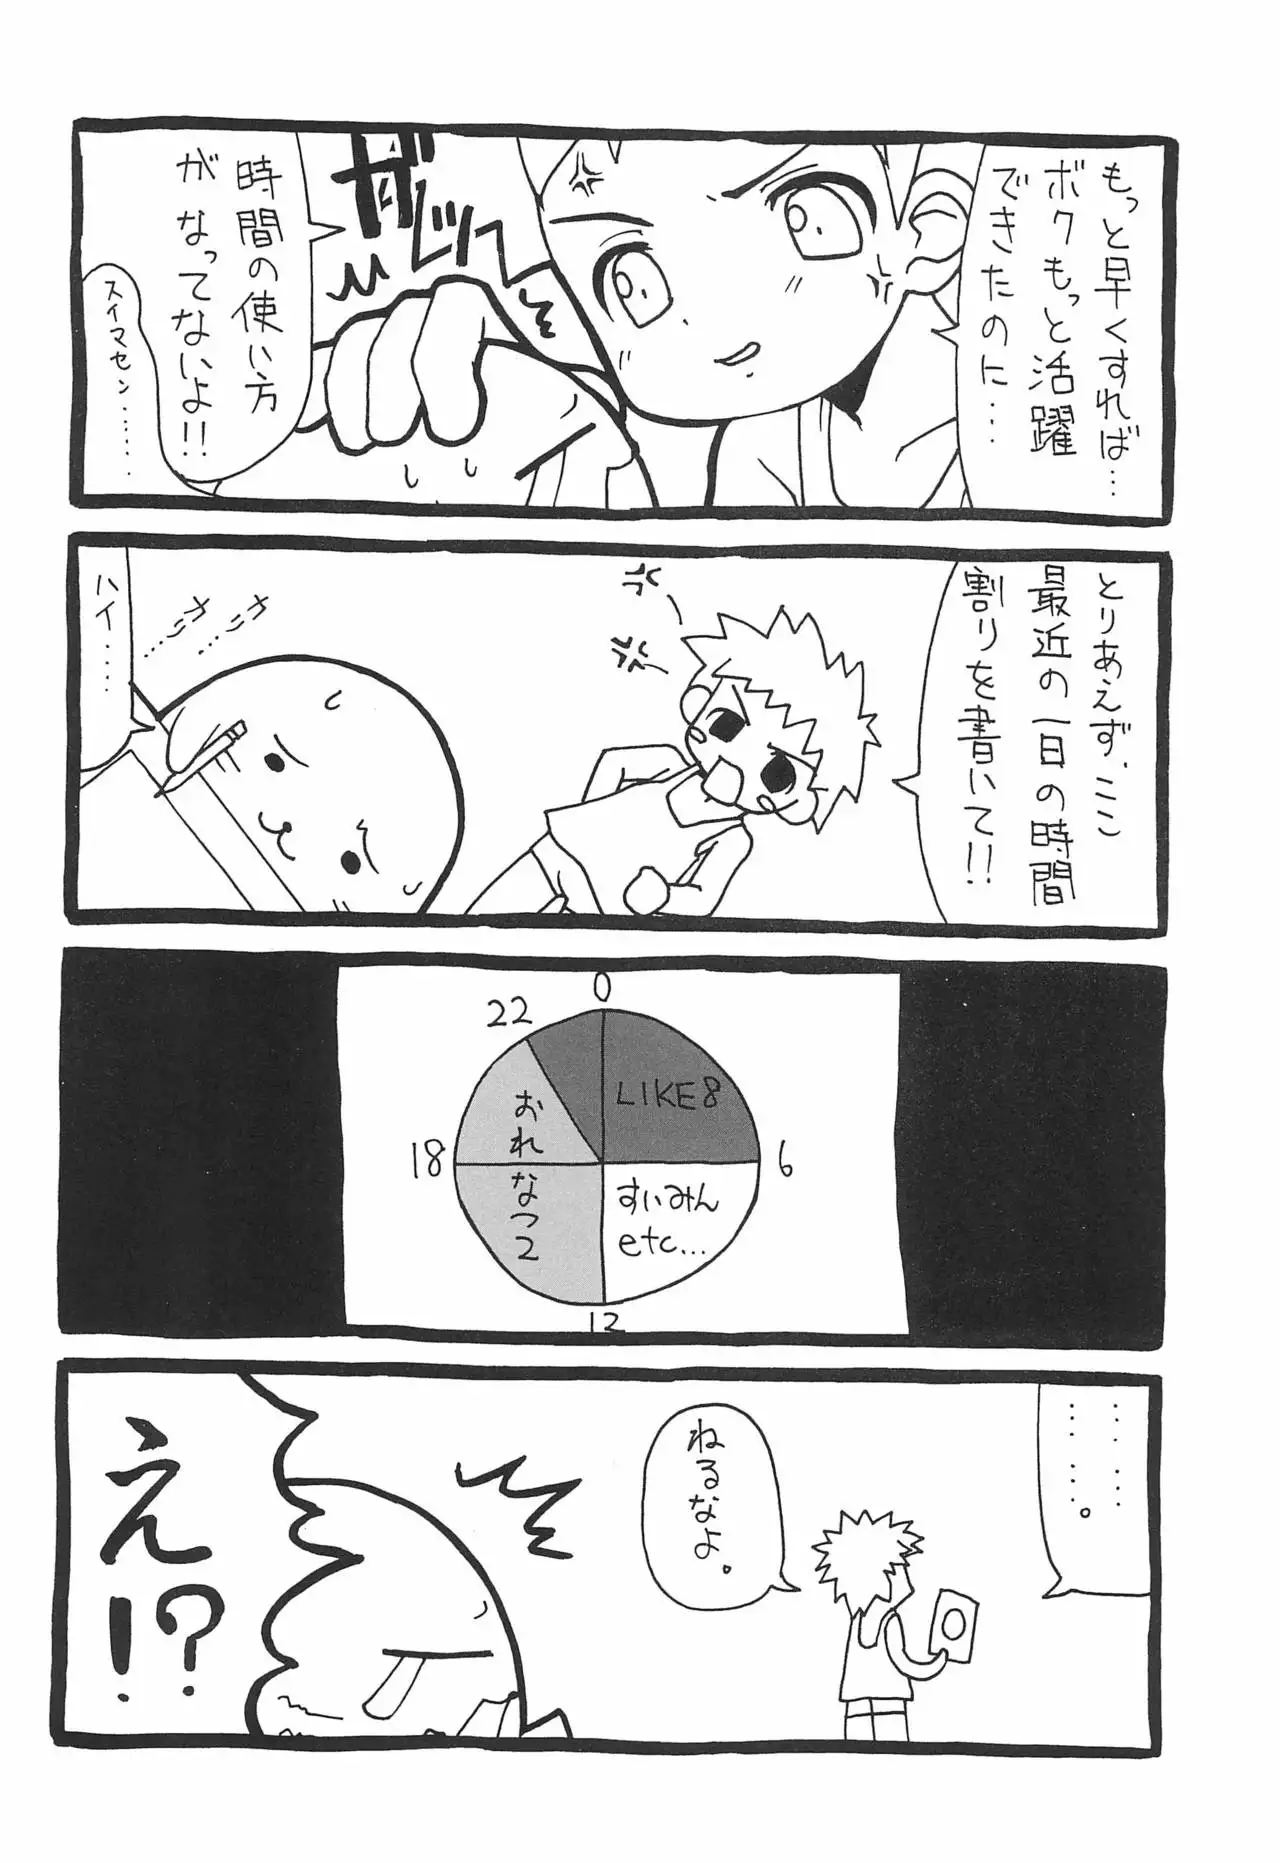 もっと早くすれば…
ボクもっと活躍
できたのに…
ガジガジ
時間の使い方
がなってないよ!!
スイマセン……
とりあえず、ここ
最近の一日の時間
割りを書いて!!
メ…
メ…
ハイ……
0
22
LIKE8
おれ
18
6
なつ2
すいみん
etc…
12
………
……。
ねるなよ。
え!?